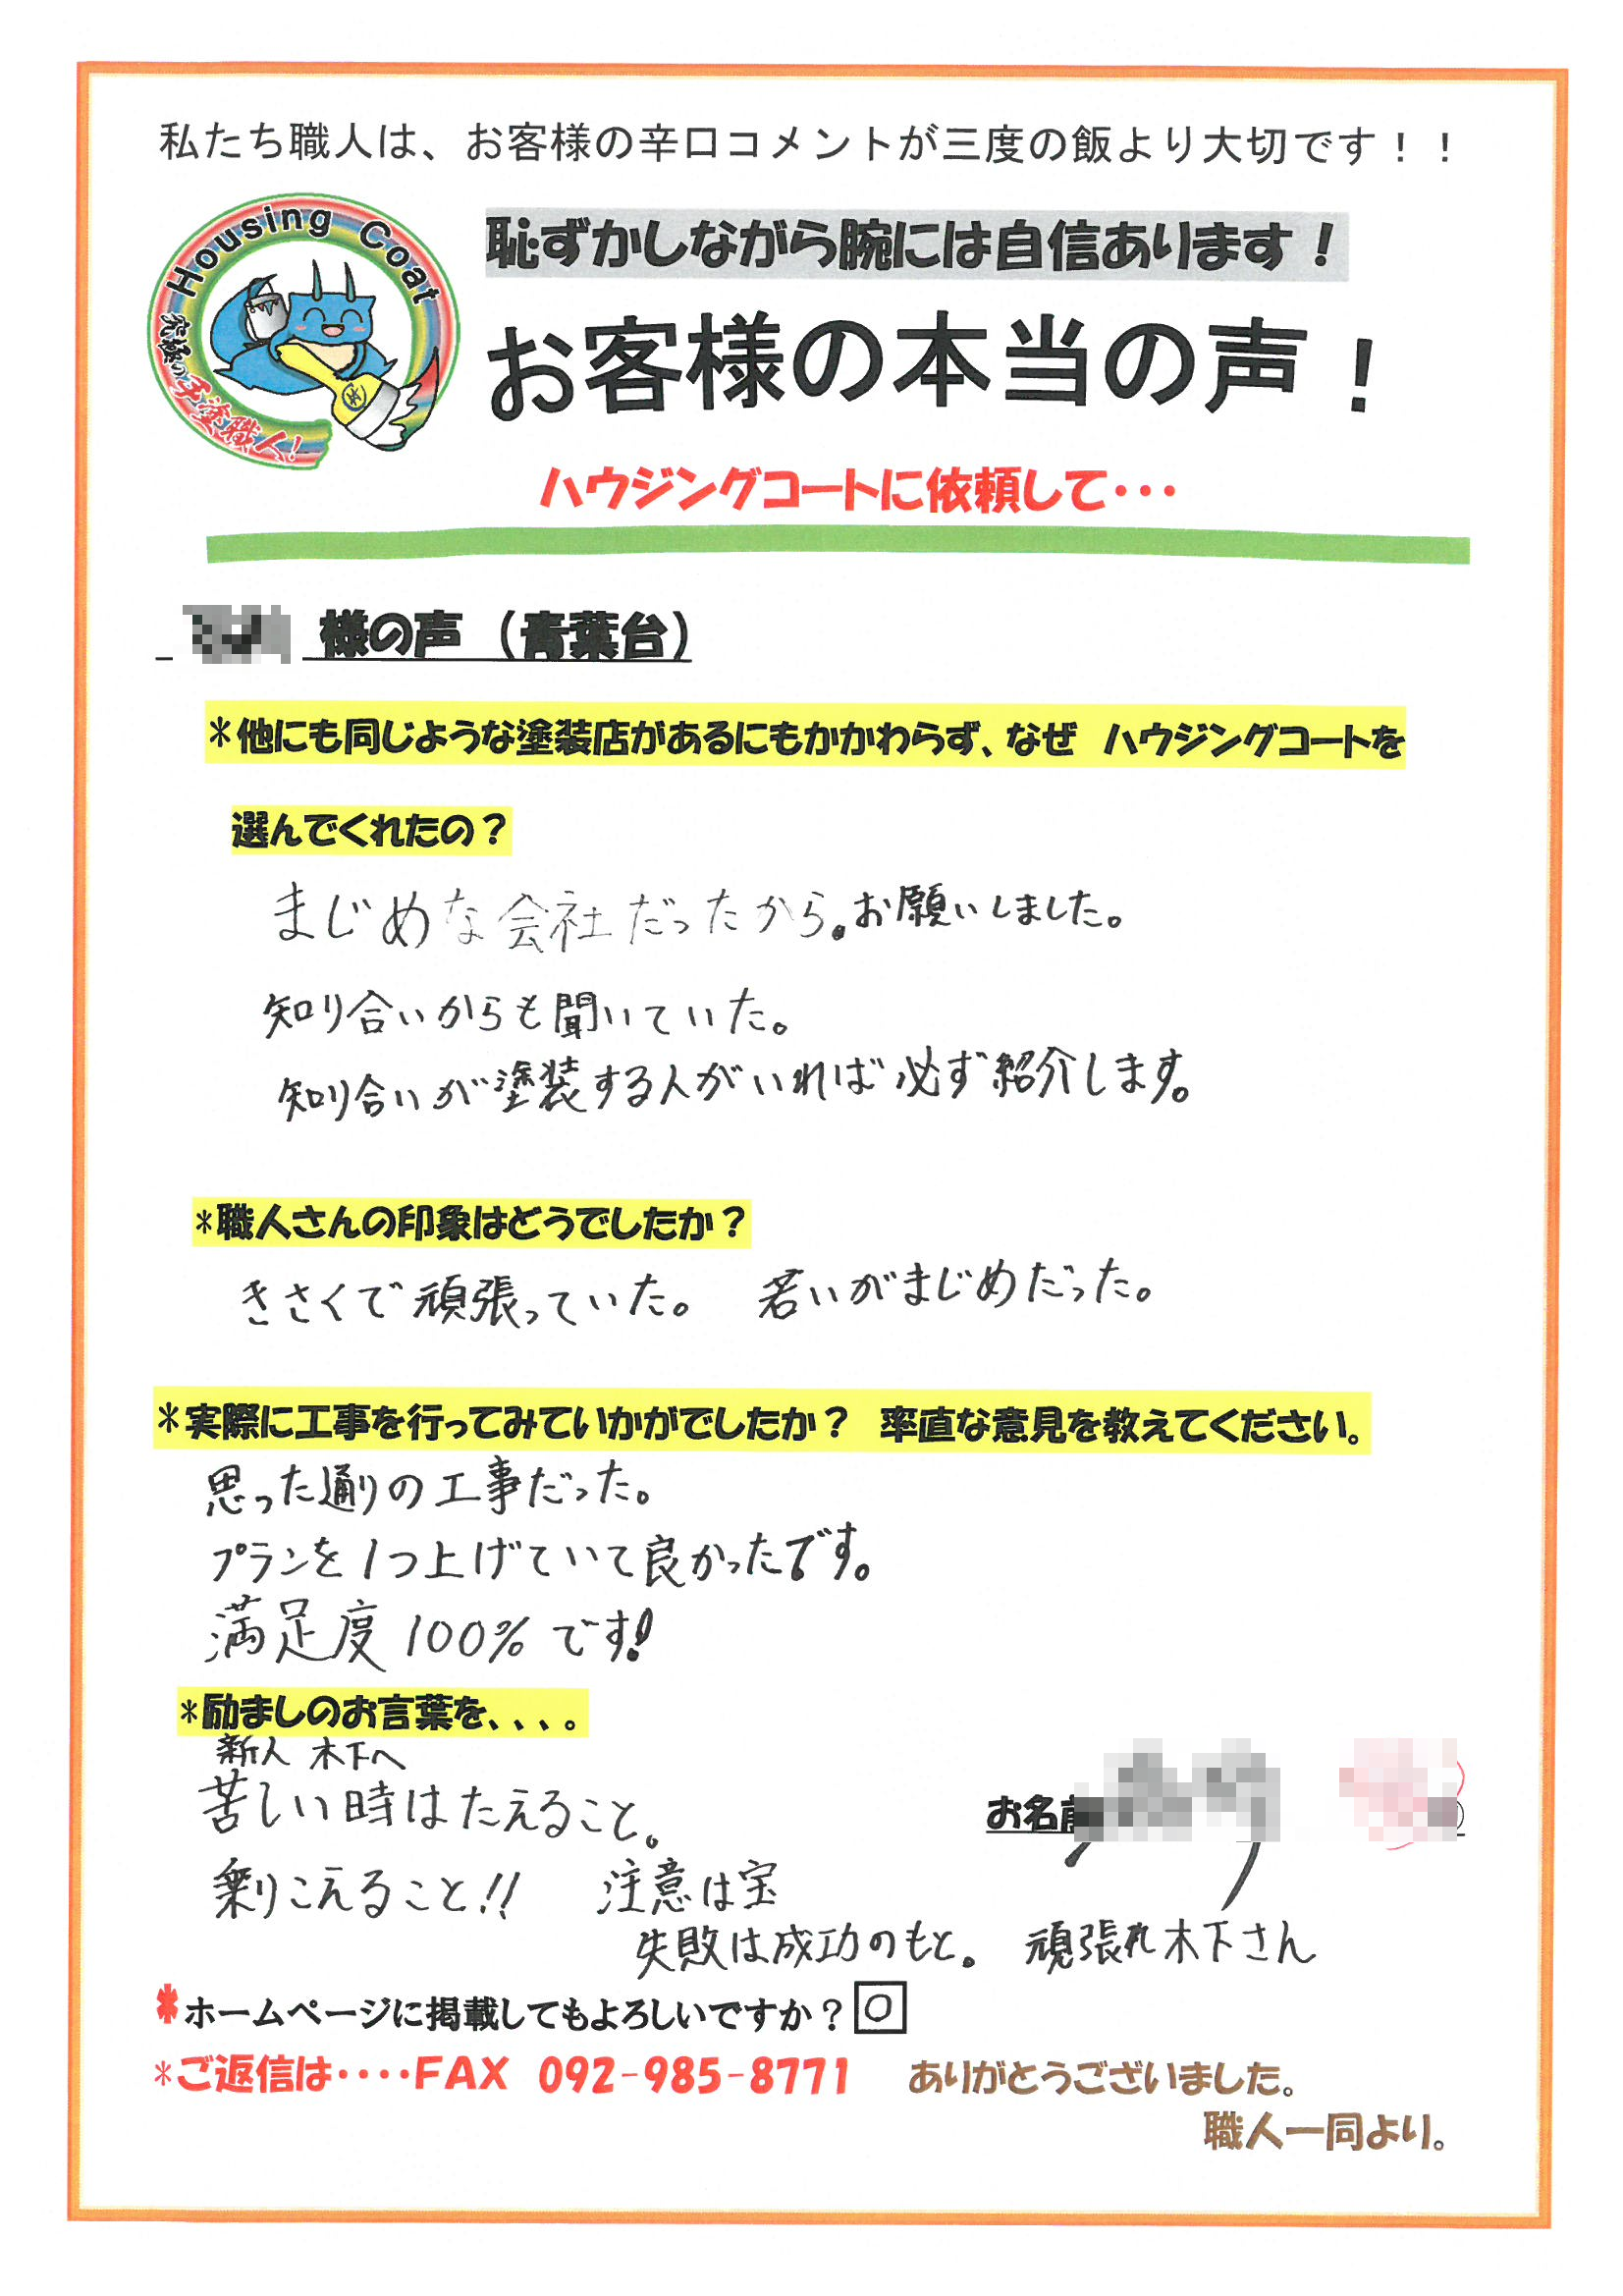 私たち職人は、お客様の辛口コメントが三度の飯より大切です！！
Housing Coat
究極の手塗職人！
恥ずかしながら腕には自信あります！
お客様の本当の声！
ハウジングコートに依頼して・・・
様の声（青葉台）
*他にも同じような塗装店があるにもかかわらず、なぜ ハウジングコートを
選んでくれたの？
まじめな会社だったから。お願いしました。
知り合いからも聞いていた。
知り合いが塗装する人がいれば必ず紹介します。
*職人さんの印象はどうでしたか？
きさくで頑張っていた。 若いがまじめだった。
*実際に工事を行ってみていかがでしたか？ 率直な意見を教えてください。
思った通りの工事だった。
プランを1つ上げていて良かったです。
満足度100%です!
*励ましのお言葉を、、、、。
新人 木下へ
苦しい時はたえること。
お名前
乗りこえること!! 注意は宝
失敗は成功のもと。 頑張れ木下さん
*ホームページに掲載してもよろしいですか？ ○
*ご返信は・・・・FAX 092-985-8771 ありがとうございました。
職人一同より。